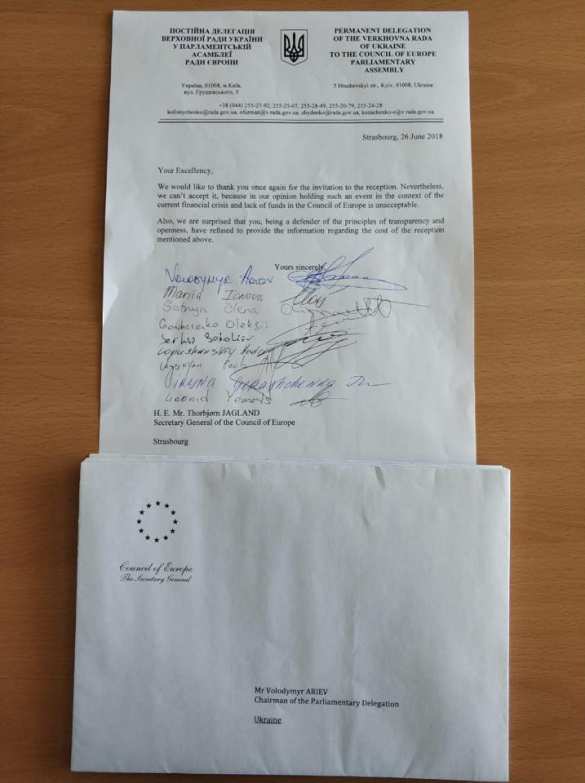 ПОСТІЙНА ДЕЛЕГАЦІЯ
ВЕРХОВНОЇ РАДИ УКРАЇНИ
У ПАРЛАМЕНТСЬКІЙ
АСАМБЛЕЇ
РАДИ ЄВРОПИ
PERMANENT DELEGATION
OF THE VERKHOVNA RADA
OF UKRAINE
TO THE COUNCIL OF EUROPE
PARLIAMENTARY
ASSEMBLY
Україна, 01008, м.Київ,
вул. Грушевського, 5
5 Hrushevskyi str., Kyiv, 01008, Ukraine
Strasbourg, 26 June 2018
Your Excellency,
We would like to thank you once again for the invitation to the reception. Nevertheless,
we can't accept it, because in our opinion holding such an event in the context of the
current financial crisis and lack of funds in the Council of Europe is unacceptable.
Also, we are surprised that you, being a defender of the principles of transparency and
openness, have refused to provide the information regarding the cost of the reception
mentioned above.
Yours sincerely
Volodymyr Ariev
Mariia Ionova
Sotnyk Olena
Goncharenko Oleksii
Serhii Sobolev
Lopushanskyi Andrii
Iryna Gerashchenko
Leonid Yemets
H. E. Mr. Thorbjørn JAGLAND
Secretary General of the Council of Europe
Strasbourg
Council of Europe
The Secretary General
Mr Volodymyr ARIEV
Chairman of the Parliamentary Delegation
Ukraine